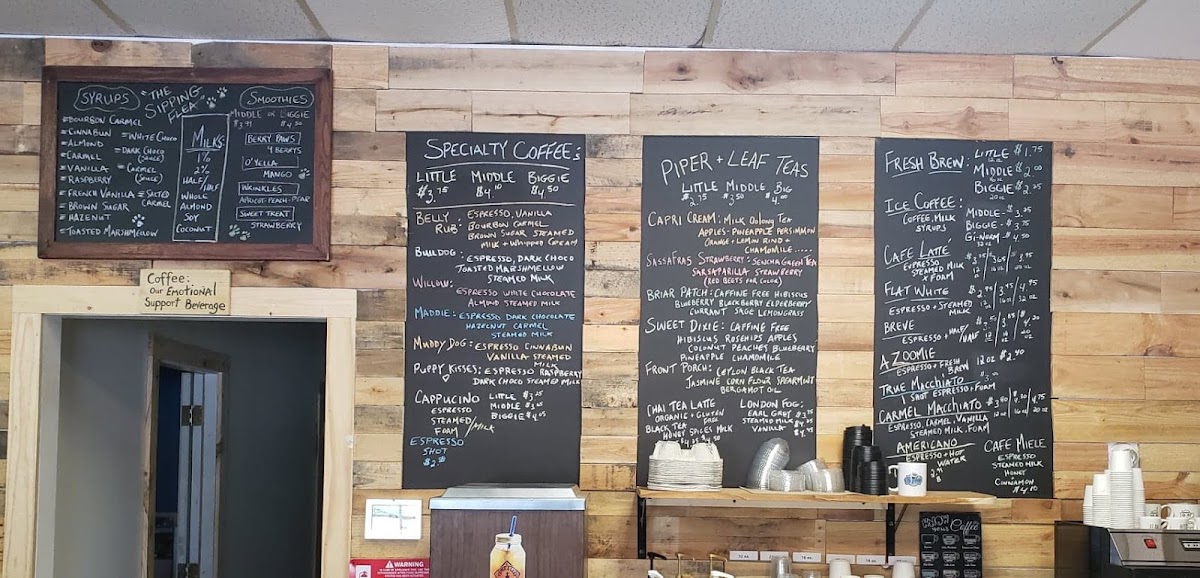 "THE SIPPING FLEA"
SYRUPS
BOURBON CARMEL
CINNABUN
ALMOND
CARMEL
VANILLA
RASPBERRY
FRENCH VANILLA
BROWN SUGAR
HAZENUT
TOASTED MARSHMELLOW
WHITE CHOCO
DARK CHOCO
(SAUCE)
CARMEL
(SAUCE)
SALTED
CARMEL
MILKS
1%
2%
HALF/
HALF
WHOLE
ALMOND
SOY
COCONUT
SMOOTHIES
MIDDLE OR BIGGIE
BERRY PAWS
4 BERRYS
O'YELLA
MANGO
WRINKLES
APRICOT-PEACH-PEAR
SWEET TREAT
STRAWBERRY
Coffee:
Our EMOTIONAL
Support Beverage
SPECIALTY COFFEE:s
LITTLE MIDDLE BIGGIE
$3.75 $4.10 $4.50
BELLY RUB: ESPRESSO, VANILLA
BOURBON CARMEL
BROWN SUGAR STEAMED
MILK + WHIPPED CREAM
BULLDOG: ESPRESSO, DARK CHOCO
TOASTED MARSHMELLOW
STEAMED MILK
WILLOW:
ESPRESSO WHITE CHOCOLATE
ALMOND STEAMED MILK
MADDIE: ESPRESSO DARK CHOCOLATE
HAZELNUT CARMEL
STEAMED MILK
MUDDY DOG: ESPRESSO CINNABUN
VANILLA STEAMED
MILK
PUPPY KISSES: ESPRESSO RASPBERRY
DARK CHOCO STEAMED MILK
CAPPUCINO LITTLE
ESPRESSO MIDDLE
STEAMED/ BIGGIE
FOAM/MILK
ESPRESSO
SHOT
PIPER + LEAF TEAS
LITTLE MIDDLE BIG
$2.75 $3.50 $4.00
CAPRI CREAM: MILK OOLONG TEA
APPLES-PINEAPPLE PERSIMMON
ORANGE + LEMON RIND +
CHAMOMILE.....
SASSAFRAS STRAWBERRY: SENCHA GREEN TEA
SARSAPARILLA STRAWBERRY
(RED BEETS FOR COLOR)
BRIAR PATCH: CAFFINE FREE HIBISCUS
BLUEBERRY BLACKBERRY ELDERBERRY
CURRANT SAGE LEMONGRASS
SWEET DIXIE: CAFFINE FREE
HIBISCUS ROSEHIPS APPLES
COCONUT PEACHES BLUEBERRY
PINEAPPLE CHAMOMILE
FRONT PORCH: CEYLON BLACK TEA
JASMINE CORN FLOUR SPEARMINT
BERGAMOT OIL
CHAI TEA LATTE
ORGANIC + GLUTEN
BLACK TEA FREE
HONEY SPICES MILK
LONDON FOG:
EARL GREY
STEAMED MILK
VANILLA
FRESH BREW: LITTLE $1.75
12 oz
MIDDLE $2.00
16 oz
BIGGIE $2.25
ICE COFFEE:
COFFEE, MILK
SYRUPS
MIDDLE-
BIGGIE-
GI-NORM-
CAFE LATTE
ESPRESSO
STEAMED MILK
x FOAM
FLAT WHITE
ESPRESSO + STEAMED
MILK
BREVE
ESPRESSO + HALF/
HALF
A ZOOMIE 12 OZ
ESPRESSO + FRESH
BREW
TRUE MACCHIATO
1 SHOT ESPRESSO + FOAM
CARMEL MACCHIATO
ESPRESSO, CARMEL, VANILLA
STEAMED MILK, FOAM
AMERICANO
ESPRESSO + HOT
WATER
CAFE MIELE
ESPRESSO
STEAMED MILK
HONEY
CINNAMON
WARNING
Coffee